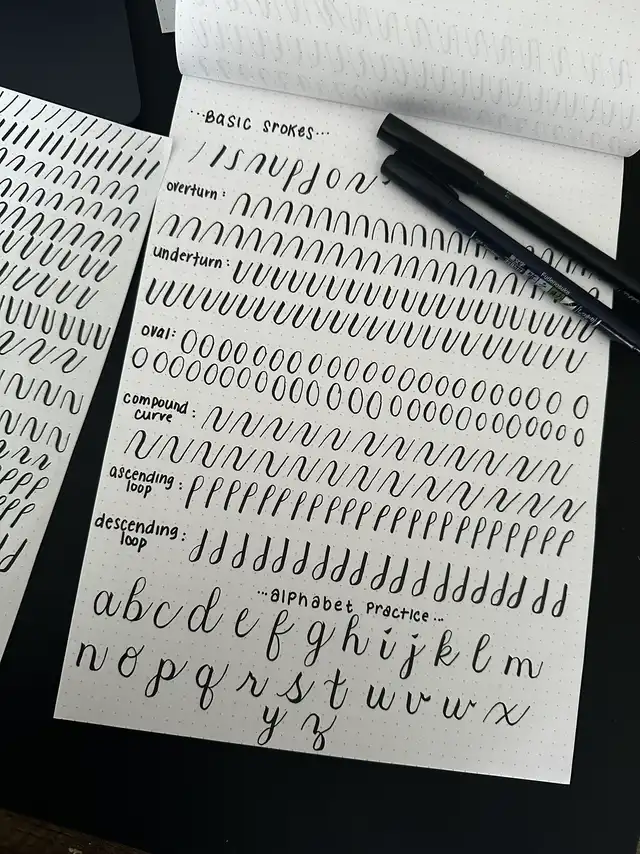 ...BASIC SROKES...
overturn:
underturn:
oval:
compound
curve:
ascending
loop:
descending
loop:
...alphabet practice...
a b c d e f g h i j k l m
n o p q r s t u v w x
y z